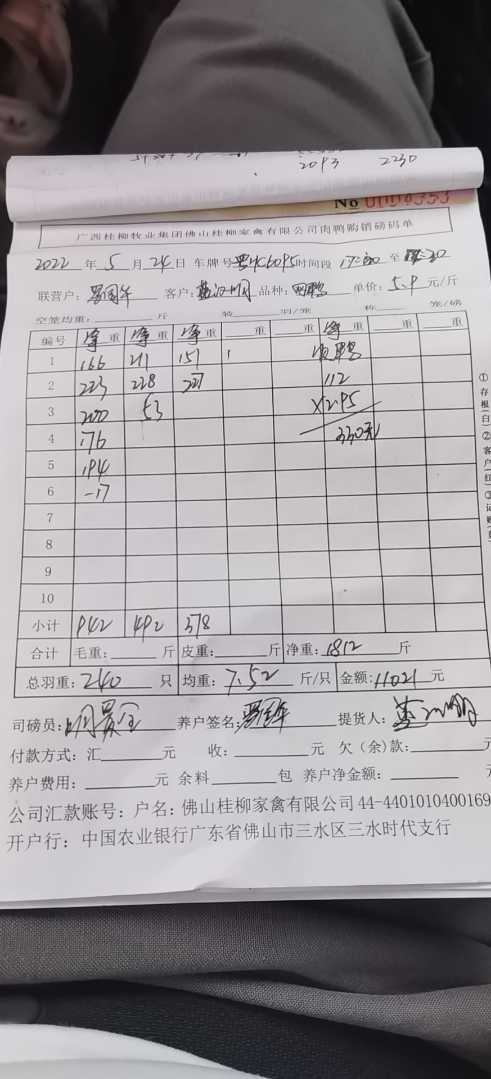 2093 2230
No 0004353
广西桂柳牧业集团佛山桂柳家禽有限公司肉鸭购销磅码单
2022 年 5 月 24 日 车牌号 6095 时间段 17:00 至 :20
联营户: 客户: 品种: 单价: 5.9 元/斤
空笼均重: 斤 装 羽/笼 称 笼/磅
编号 净重 净重 净重 重 重 净重 重
1 166 211 151
2 223 228 227 112
3 200 53 X2.95
4 176 330元
5 194
6 -17
7
8
9
10
小计 942 492 378
合计 毛重: 斤 皮重: 斤 净重: 1812 斤
总羽重: 240 只 均重: 7.52 斤/只 金额: 11021 元
司磅员: 养户签名: 提货人:
付款方式: 汇 元 收: 元 欠(余)款: 元
养户费用: 元 余料 包 养户净金额: 元
公司汇款账号: 户名: 佛山桂柳家禽有限公司 44-4401010400169
开户行: 中国农业银行广东省佛山市三水区三水时代支行
①存根(白)②客户(红)③记账